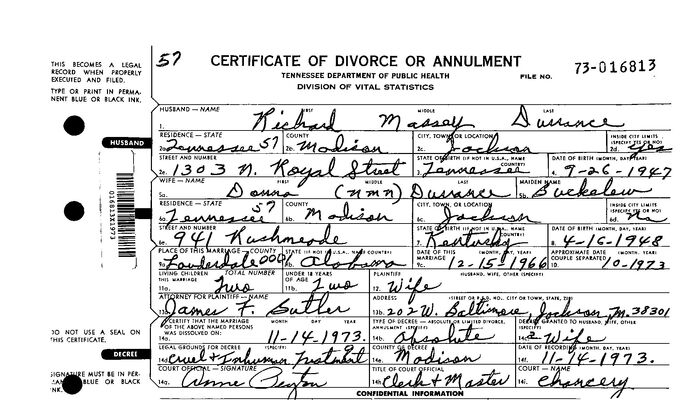 57 CERTIFICATE OF DIVORCE OR ANNULMENT
TENNESSEE DEPARTMENT OF PUBLIC HEALTH FILE NO. 73-016813
DIVISION OF VITAL STATISTICS
THIS BECOMES A LEGAL
RECORD WHEN PROPERLY
EXECUTED AND FILED.
TYPE OR PRINT IN PERMA-
NENT BLUE OR BLACK INK.
HUSBAND — NAME FIRST MIDDLE LAST
1. Richard Massey Durrance
HUSBAND
RESIDENCE — STATE COUNTY CITY, TOWN, OR LOCATION INSIDE CITY LIMITS (SPECIFY YES OR NO)
2a. Tennessee 57 2b. Madison 2c. Jackson 2d. yes
STREET AND NUMBER STATE OF BIRTH (IF NOT IN U.S.A., NAME COUNTRY) DATE OF BIRTH (MONTH, DAY, YEAR)
2e. 1303 N. Royal Street 3. Tennessee 4. 9-26-1947
WIFE — NAME FIRST MIDDLE LAST MAIDEN NAME
5a. Donna (NMN) Durrance 5b. Buckelew
RESIDENCE — STATE COUNTY CITY, TOWN, OR LOCATION INSIDE CITY LIMITS (SPECIFY YES OR NO)
6a. Tennessee 57 6b. Madison 6c. Jackson 6d. no
016813X1973
WIFE
STREET AND NUMBER STATE OF BIRTH (IF NOT IN U.S.A., NAME COUNTRY) DATE OF BIRTH (MONTH, DAY, YEAR)
6e. 941 Rushmeade 7. Kentucky 8. 4-16-1948
PLACE OF THIS MARRIAGE — COUNTY STATE (IF NOT IN U.S.A., NAME COUNTRY) DATE OF THIS MARRIAGE (MONTH, DAY, YEAR) APPROXIMATE DATE COUPLE SEPARATED
9a. Lauderdale 0001 9b. Alabama 9c. 12-15-1966 10. 10-1973
LIVING CHILDREN OF THIS MARRIAGE TOTAL NUMBER UNDER 18 YEARS OF AGE PLAINTIFF HUSBAND, WIFE, OTHER (SPECIFY)
11a. Two 11b. Two 12. Wife
ATTORNEY FOR PLAINTIFF — NAME ADDRESS (STREET OR R.F.D. NO., CITY OR TOWN, STATE, ZIP)
13a. James F. Butler 13b. 202 W. Baltimore Jackson, Tn. 38301
I CERTIFY THAT THE MARRIAGE OF THE ABOVE NAMED PERSONS WAS DISSOLVED ON: MONTH DAY YEAR TYPE OF DECREE — ABSOLUTE OR LIMITED DIVORCE, ANNULMENT (SPECIFY) DECREE GRANTED TO HUSBAND, WIFE, OTHER (SPECIFY)
14a. 11-14-1973. 14b. Absolute 14c. 2 Wife
DO NOT USE A SEAL ON
THIS CERTIFICATE.
DECREE
LEGAL GROUNDS FOR DECREE (SPECIFY) COUNTY OF DECREE DATE OF RECORDING (MONTH, DAY, YEAR)
14d. Cruel & Inhuman Treatment 14e. Madison 14f. 11-14-1973.
SIGNATURE MUST BE IN PER-
BLUE OR BLACK
INK.
COURT OFFICIAL — SIGNATURE TITLE OF COURT OFFICIAL COURT — NAME
14g. Anne Peyton 14h. Clerk & Master 14i. Chancery
CONFIDENTIAL INFORMATION